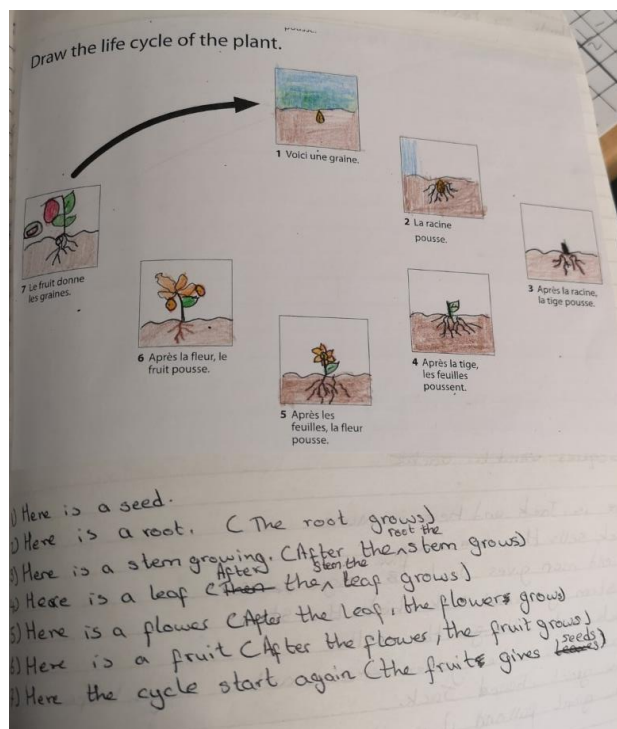 pousse.
Draw the life cycle of the plant.
1 Voici une graine.
2 La racine
pousse.
3 Après la racine,
la tige pousse.
4 Après la tige,
les feuilles
poussent.
5 Après les
feuilles, la fleur
pousse.
6 Après la fleur, le
fruit pousse.
7 Le fruit donne
les graines.
1) Here is a seed.
2) Here is a root. (The root grows)
3) Here is a stem growing. (After the root the stem grows)
4) Here is a leaf (Then After the stem the leaf grows)
5) Here is a flower (After the leaf, the flowers grow)
6) Here is a fruit (After the flower, the fruit grows)
7) Here the cycle start again (the fruits gives leaves seeds)